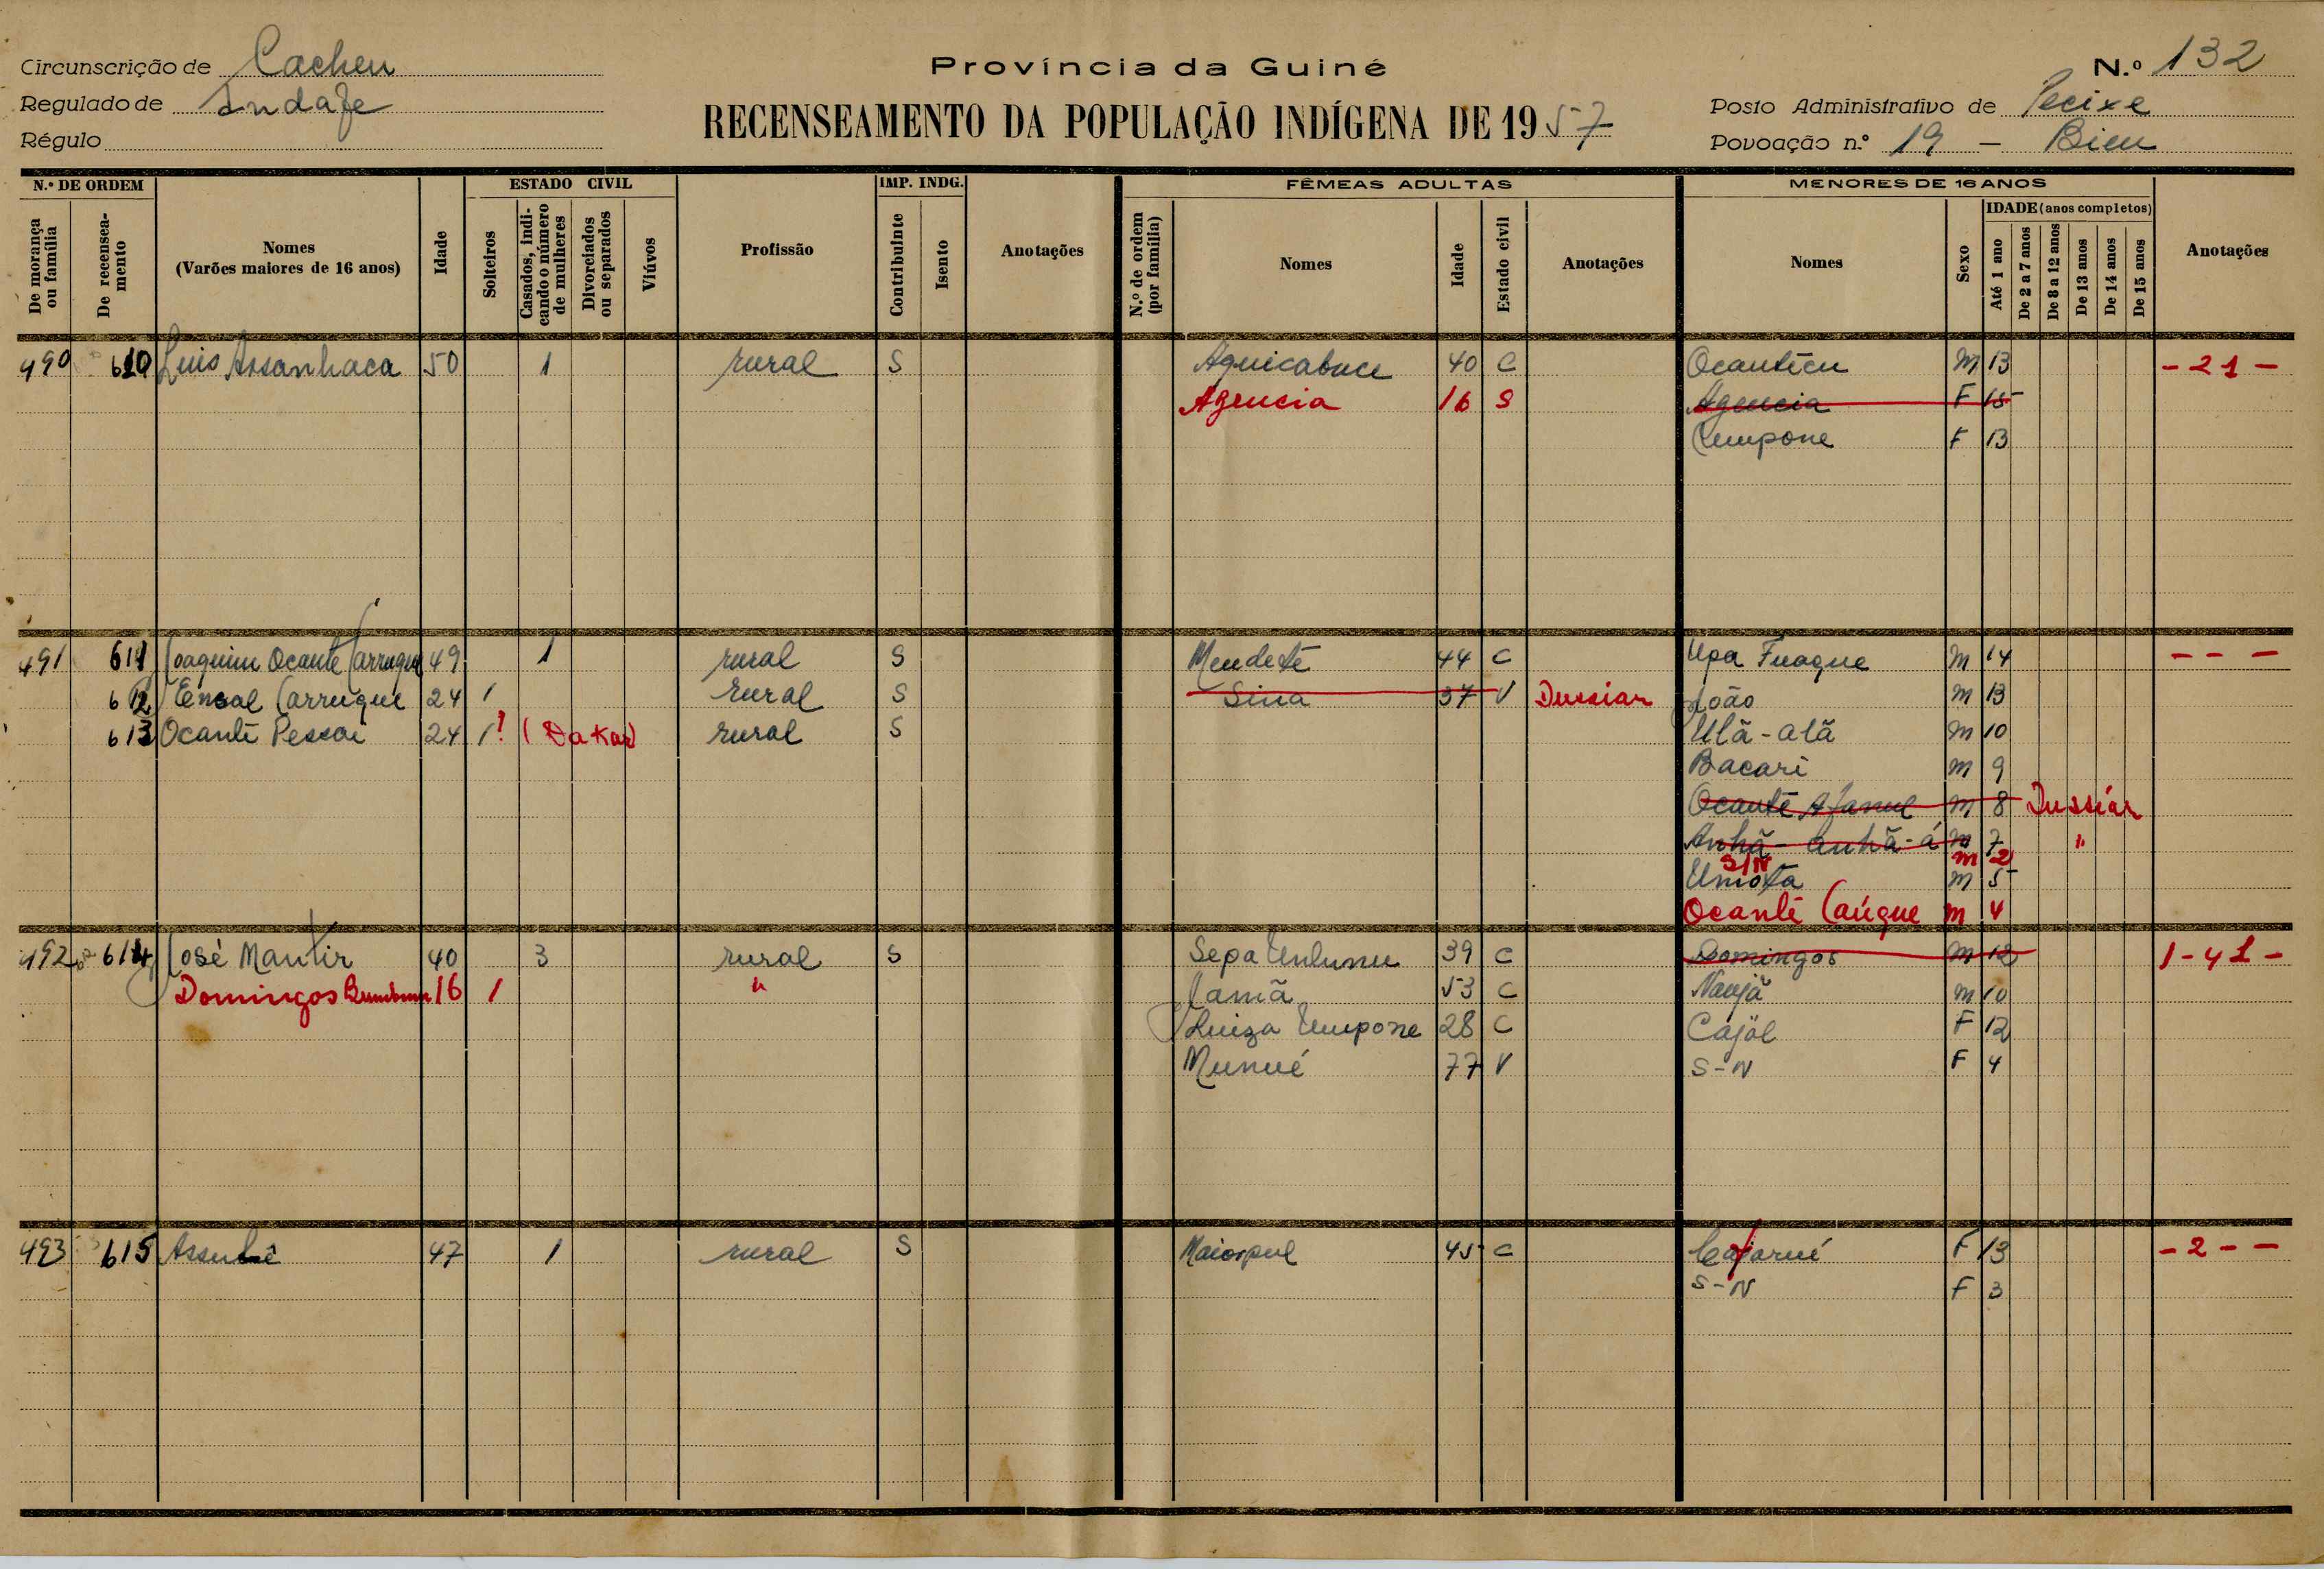 Circunscrição de Cacheu
Regulado de Indafe
Régulo
Província da Guiné
RECENSEAMENTO DA POPULAÇÃO INDÍGENA DE 1957
N.º 132
Posto Administrativo de Pecixe
Povoação n.º 19 - Bieu
N.º DE ORDEM
De morança ou família
De recenseamento
Nomes
(Varões maiores de 16 anos)
Idade
ESTADO CIVIL
Solteiros
Casados, indicando o número de mulheres
Divorciados ou separados
Viúvos
Profissão
IMP. INDG.
Contribuinte
Isento
Anotações
FÊMEAS ADULTAS
N.º de ordem (por família)
Nomes
Idade
Estado civil
Anotações
MENORES DE 16 ANOS
Nomes
Sexo
IDADE (anos completos)
Até 1 ano
De 2 a 7 anos
De 8 a 12 anos
De 13 anos
De 14 anos
De 15 anos
Anotações
490 610 Luis Assanhaca 50 1 rural S Aquicabuce 40 C Ocantécu M 13 - 21 -
Agencia 16 S Agencia F 15
Cumpone F 13
491 611 Joaquim Ocante Carruque 49 1 rural S Mendeté 44 C Upa Fuaque M 14 - - -
612 Ensal Carruque 24 1 rural S Sina 37 V Dussiar João M 13
613 Ocanté Pessoi 24 1! (Dakar) rural S Utã-atã M 10
Bacari M 9
Ocanté Afanul M 8 Dussiár
Anhã-anhã-á M 7 "
S/N M 2
Umota M 5
Ocanté Caúque M 4
492 614 José Mantir 40 3 rural S Sepa Unlunu 39 C Domingos M 12 1-41-
Domingos 16 1 " Jamã 53 C Naujã M 10
Luiza Umpone 28 C Cajól F 12
Munué 77 V S-N F 4
493 615 Assubê 47 1 rural S Maiospul 45 C Cajarué F 13 - 2 - -
S-N F 3